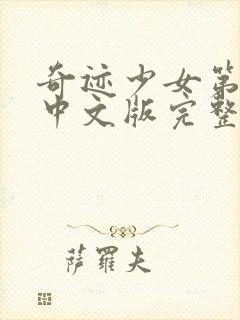 奇迹少女第
中文版完整
萨罗夫